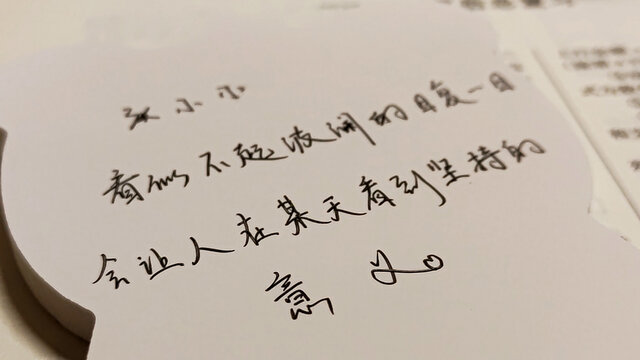 小小
看似不起波澜的日复一日
会让人在某天看到坚持的
意义